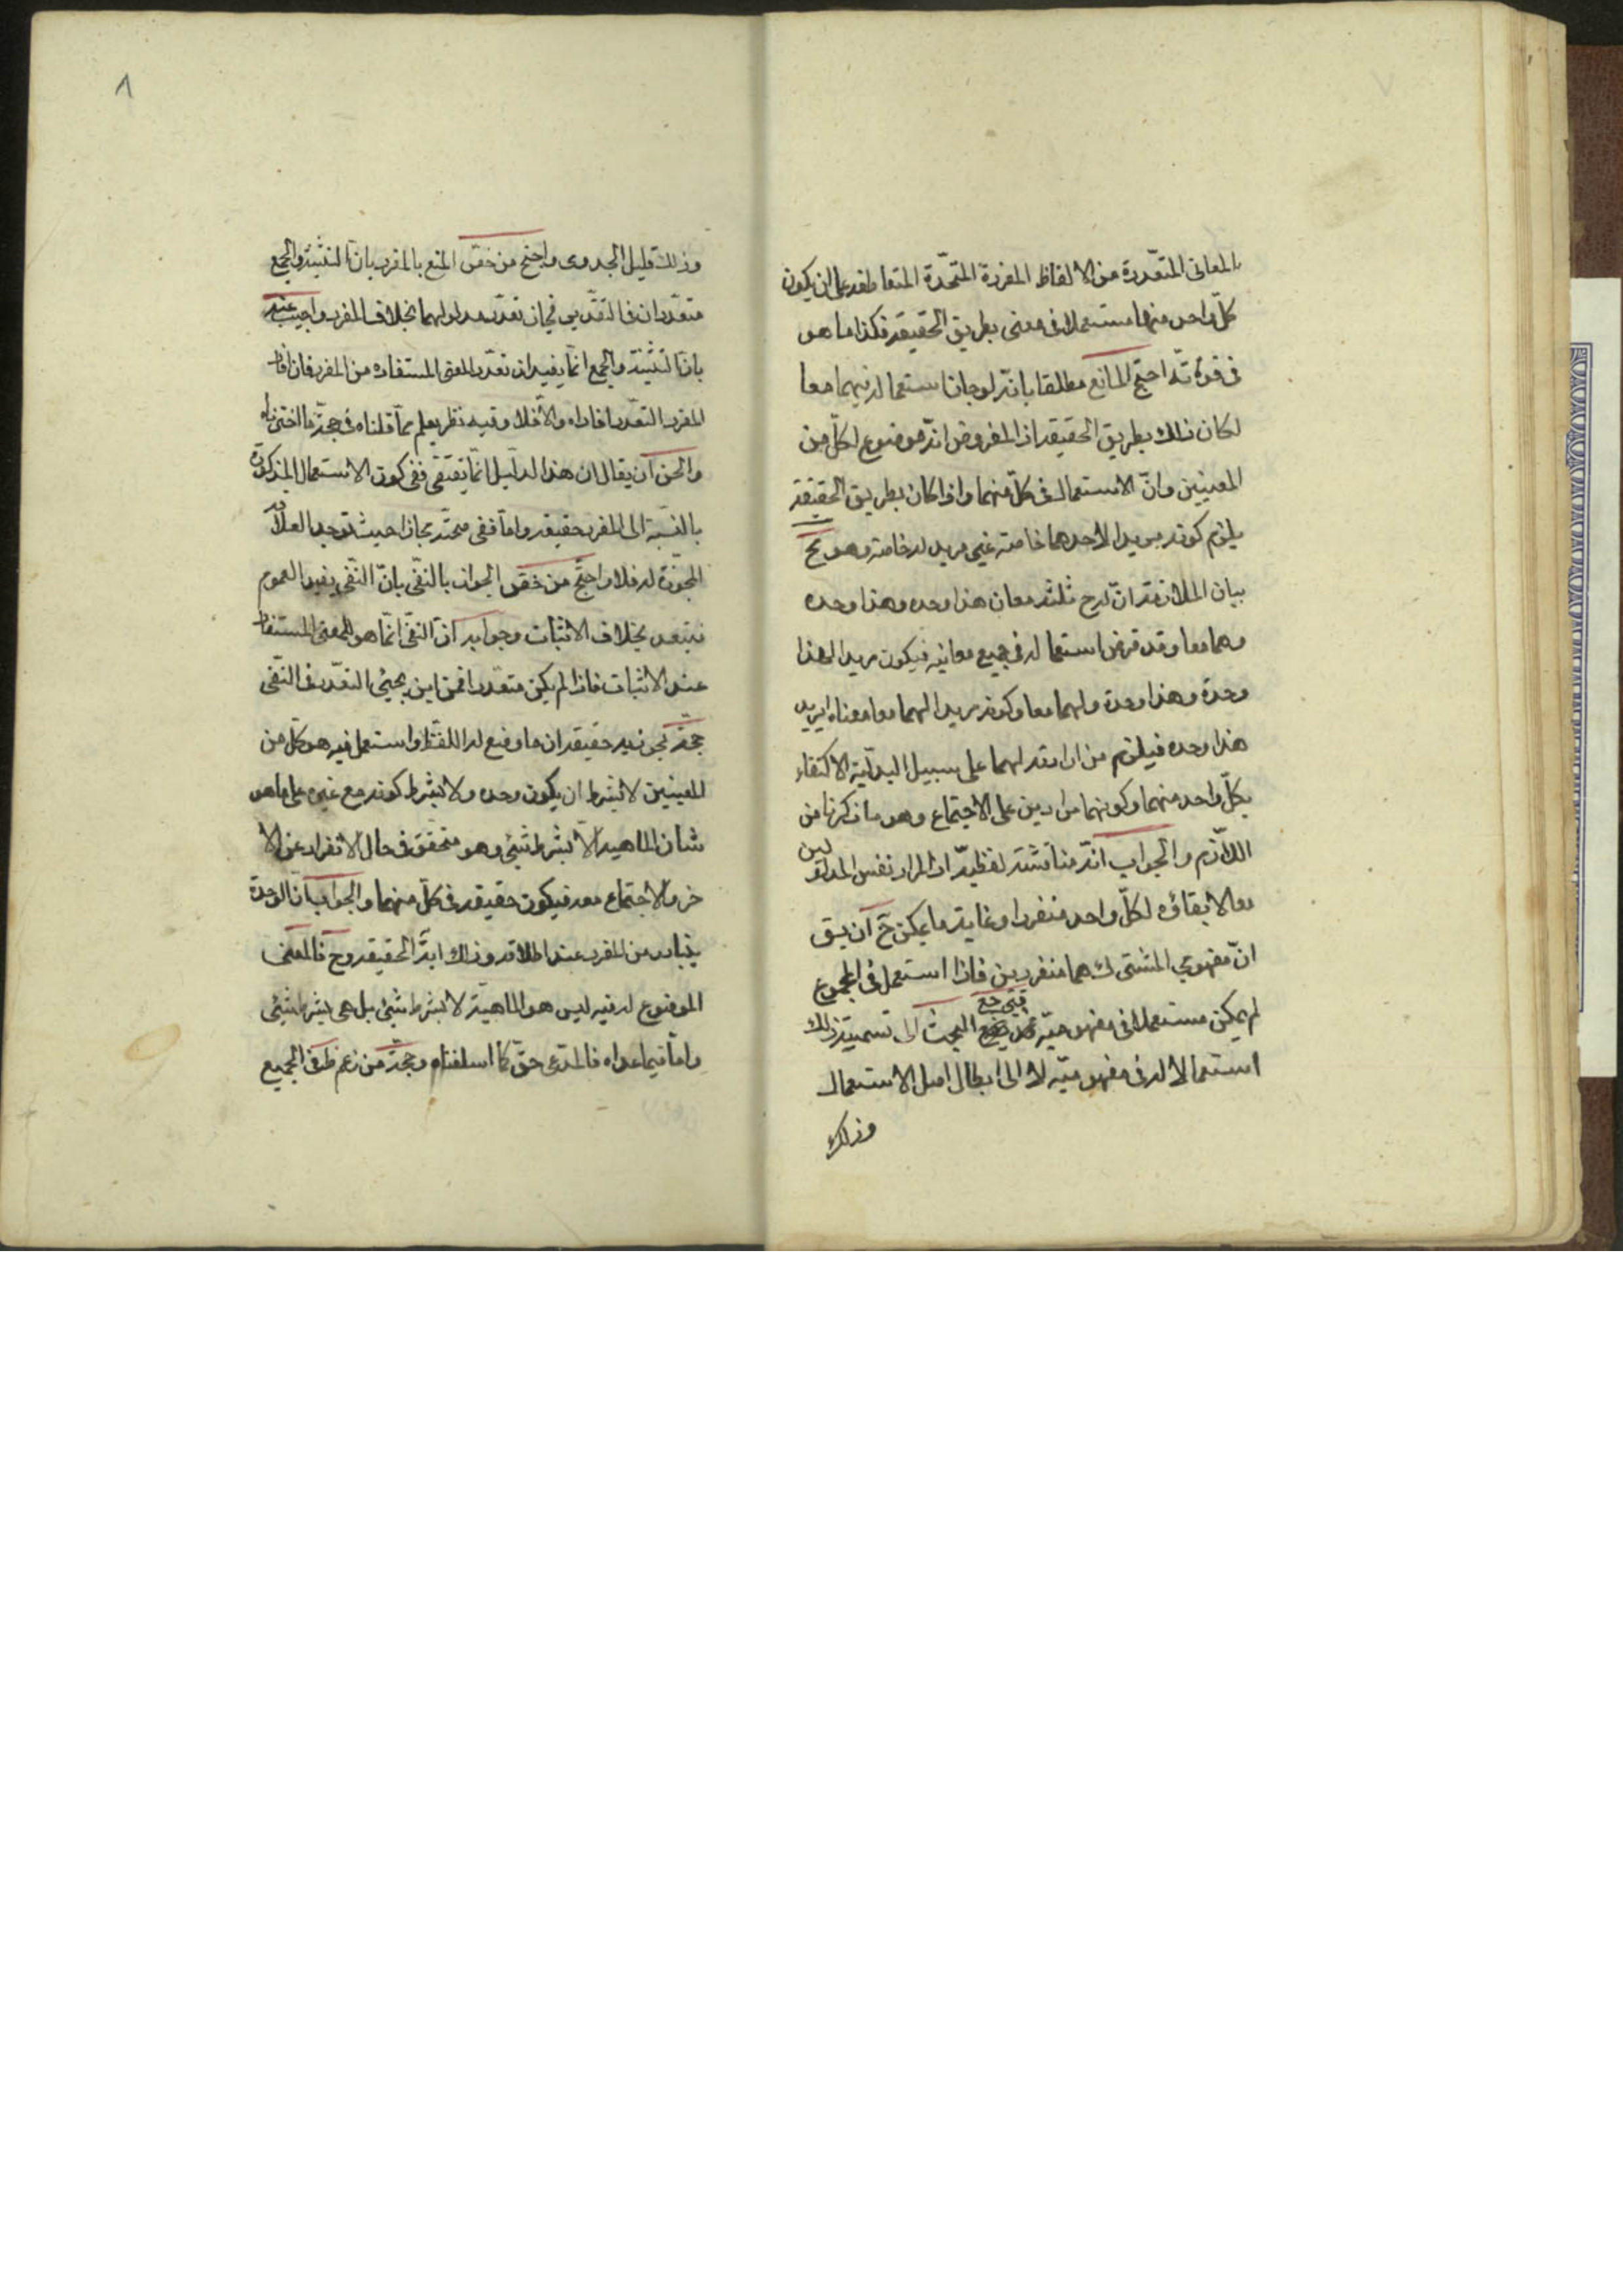 المعانى المتعدّدة من الالفاظ المفردة المتحدّة المتعاطفه على ان يكون
كلّ واحد منها مستعملا فى معنى بطريق الحقيقه فكذا ما هو
فى قوّته احتج المانع مطلقا بانّه لو جاز استعماله فيهما معا
لكان ذلك بطريق الحقيقه اذ المفروض انّه موضوع لكلّ من
المعنيين وانّ الاستعمال فى كلّ منهما واذا كان بطريق الحقيقة
يلزم كونه مريدا لاحدهما خاصّة غير مريد له خاصّة وهو مح
بيان الملازمة انّ له ح ثلثه معان هذا وحده وهذا وحده
وهما معا وقد فرض استعماله فى جميع معانيه فيكون مريدا لهذا
وحده وهذا وحدة ولهما معا وكونه مريدا لهما معا معناه ان يريد
هذا وحده فيلزم من ارادته لهما على سبيل البدليّة الاكتفاء
بكلّ واحد منهما وكونهما مرادين على الاجتماع وهو ما ذكرنا من
اللازم والجواب انّه مناقشة لفظيّة اذ المراد نفس المدلولين
معا لا بقاؤه لكلّ واحد منفردا وغاية ما يمكن ح ان يق
انّ مفهومى المشترك هما منفردين فاذا استعمل فى المجموع
لم يكن مستعملا فى مفهوميّه فيرجع البحث الى تسمية ذلك
استعمالا له فى مفهوميّه لا الى ابطال اصل الاستعمال
وذلك
٨
وذلك قليل الجدوى واحتج من خصّ المنع بالمفرد بانّ التثنية والجمع
متعدّدان فى التقدير فجاز تعدّد مدلوليهما بخلاف المفرد واجيب عنه
بانّ التثنية والجمع انّما يفيدان تعدّد المعنى المستفاد من المفرد فان افاد
المفرد التعدّد افاداه والّا فلا وفيه نظر يعلم ممّا قلناه فى حجّة ما اخترناه
والحق ان يقال ان هذا الدليل انّما يقتضى نفى كون الاستعمال المذكور
بالنسبة الى المفرد حقيقه وامّا نفى صحّته مجازا حيث توجد العلاقه
المجوّزة له فلا واحتجّ من خصّ الجواز بالنفى بانّ النفى يفيد العموم
فيتعدد بخلاف الاثبات وجوابه انّ النفى انّما هو للمعنى المستفاد
عند الاثبات فاذا لم يكن متعدّدا فمن اين يجئى التعدّد فى النفى
حجّة مجوّزيه حقيقه ان ما وضع له اللفظ واستعمل فيه هو كلّ من
المعنيين لا بشرط ان يكون وحده ولا بشرط كونه مع غيره على ما هو
شان الماهية لا بشرط شئى وهو متحقق فى حال الانفراد عن الا
خر والاجتماع معه فيكون حقيقه فى كلّ منهما والجواب انّ الوحدة
يتبادر من المفرد عند اطلاقه وذلك اية الحقيقه وح فالمعنى
الموضوع له فيه ليس هو الماهيّة لا بشرط شئى بل هى بشرط شئى
وامّا فيما عداه فالمدّعى حقّ كما اسلفناه وحجّة من زعم ظ فى الجميع